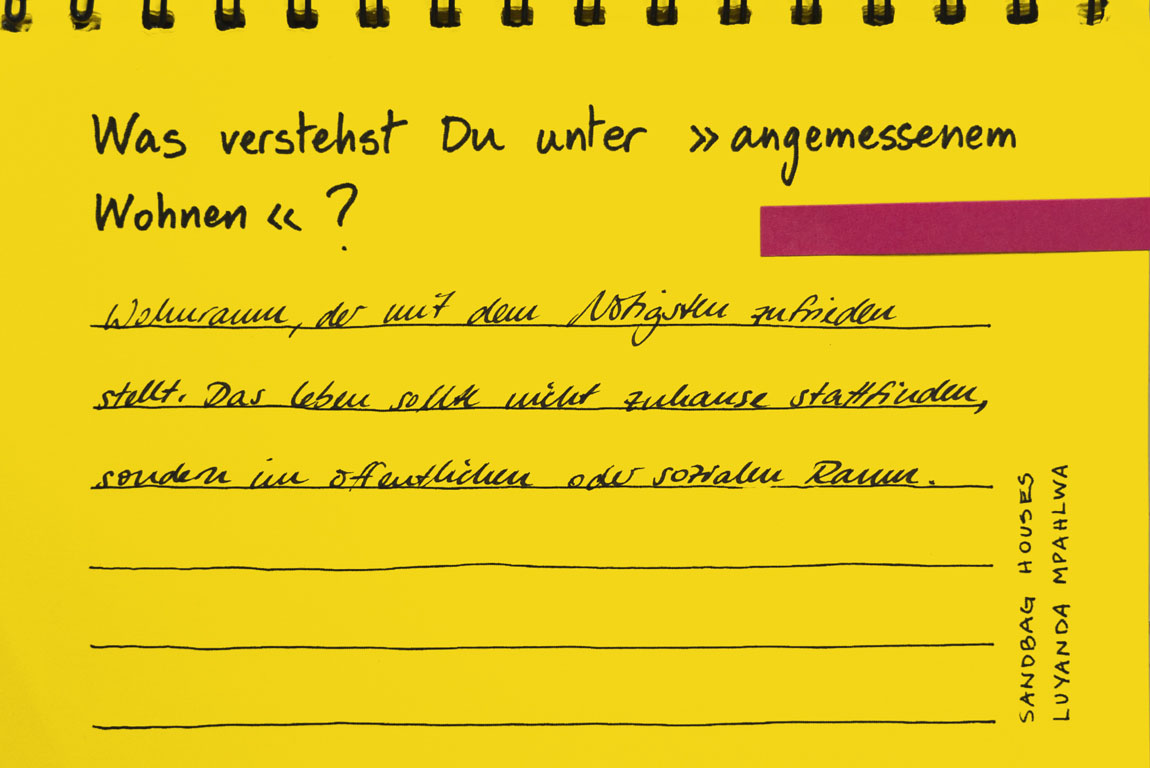 Was verstehst Du unter »angemessenem
Wohnen«?
Wohnraum, der mit dem Nötigsten zufrieden
stellt. Das Leben sollte nicht zuhause stattfinden,
sondern im öffentlichen oder sozialen Raum.
SANDBAG HOUSES
LUYANDA MPAHLWA